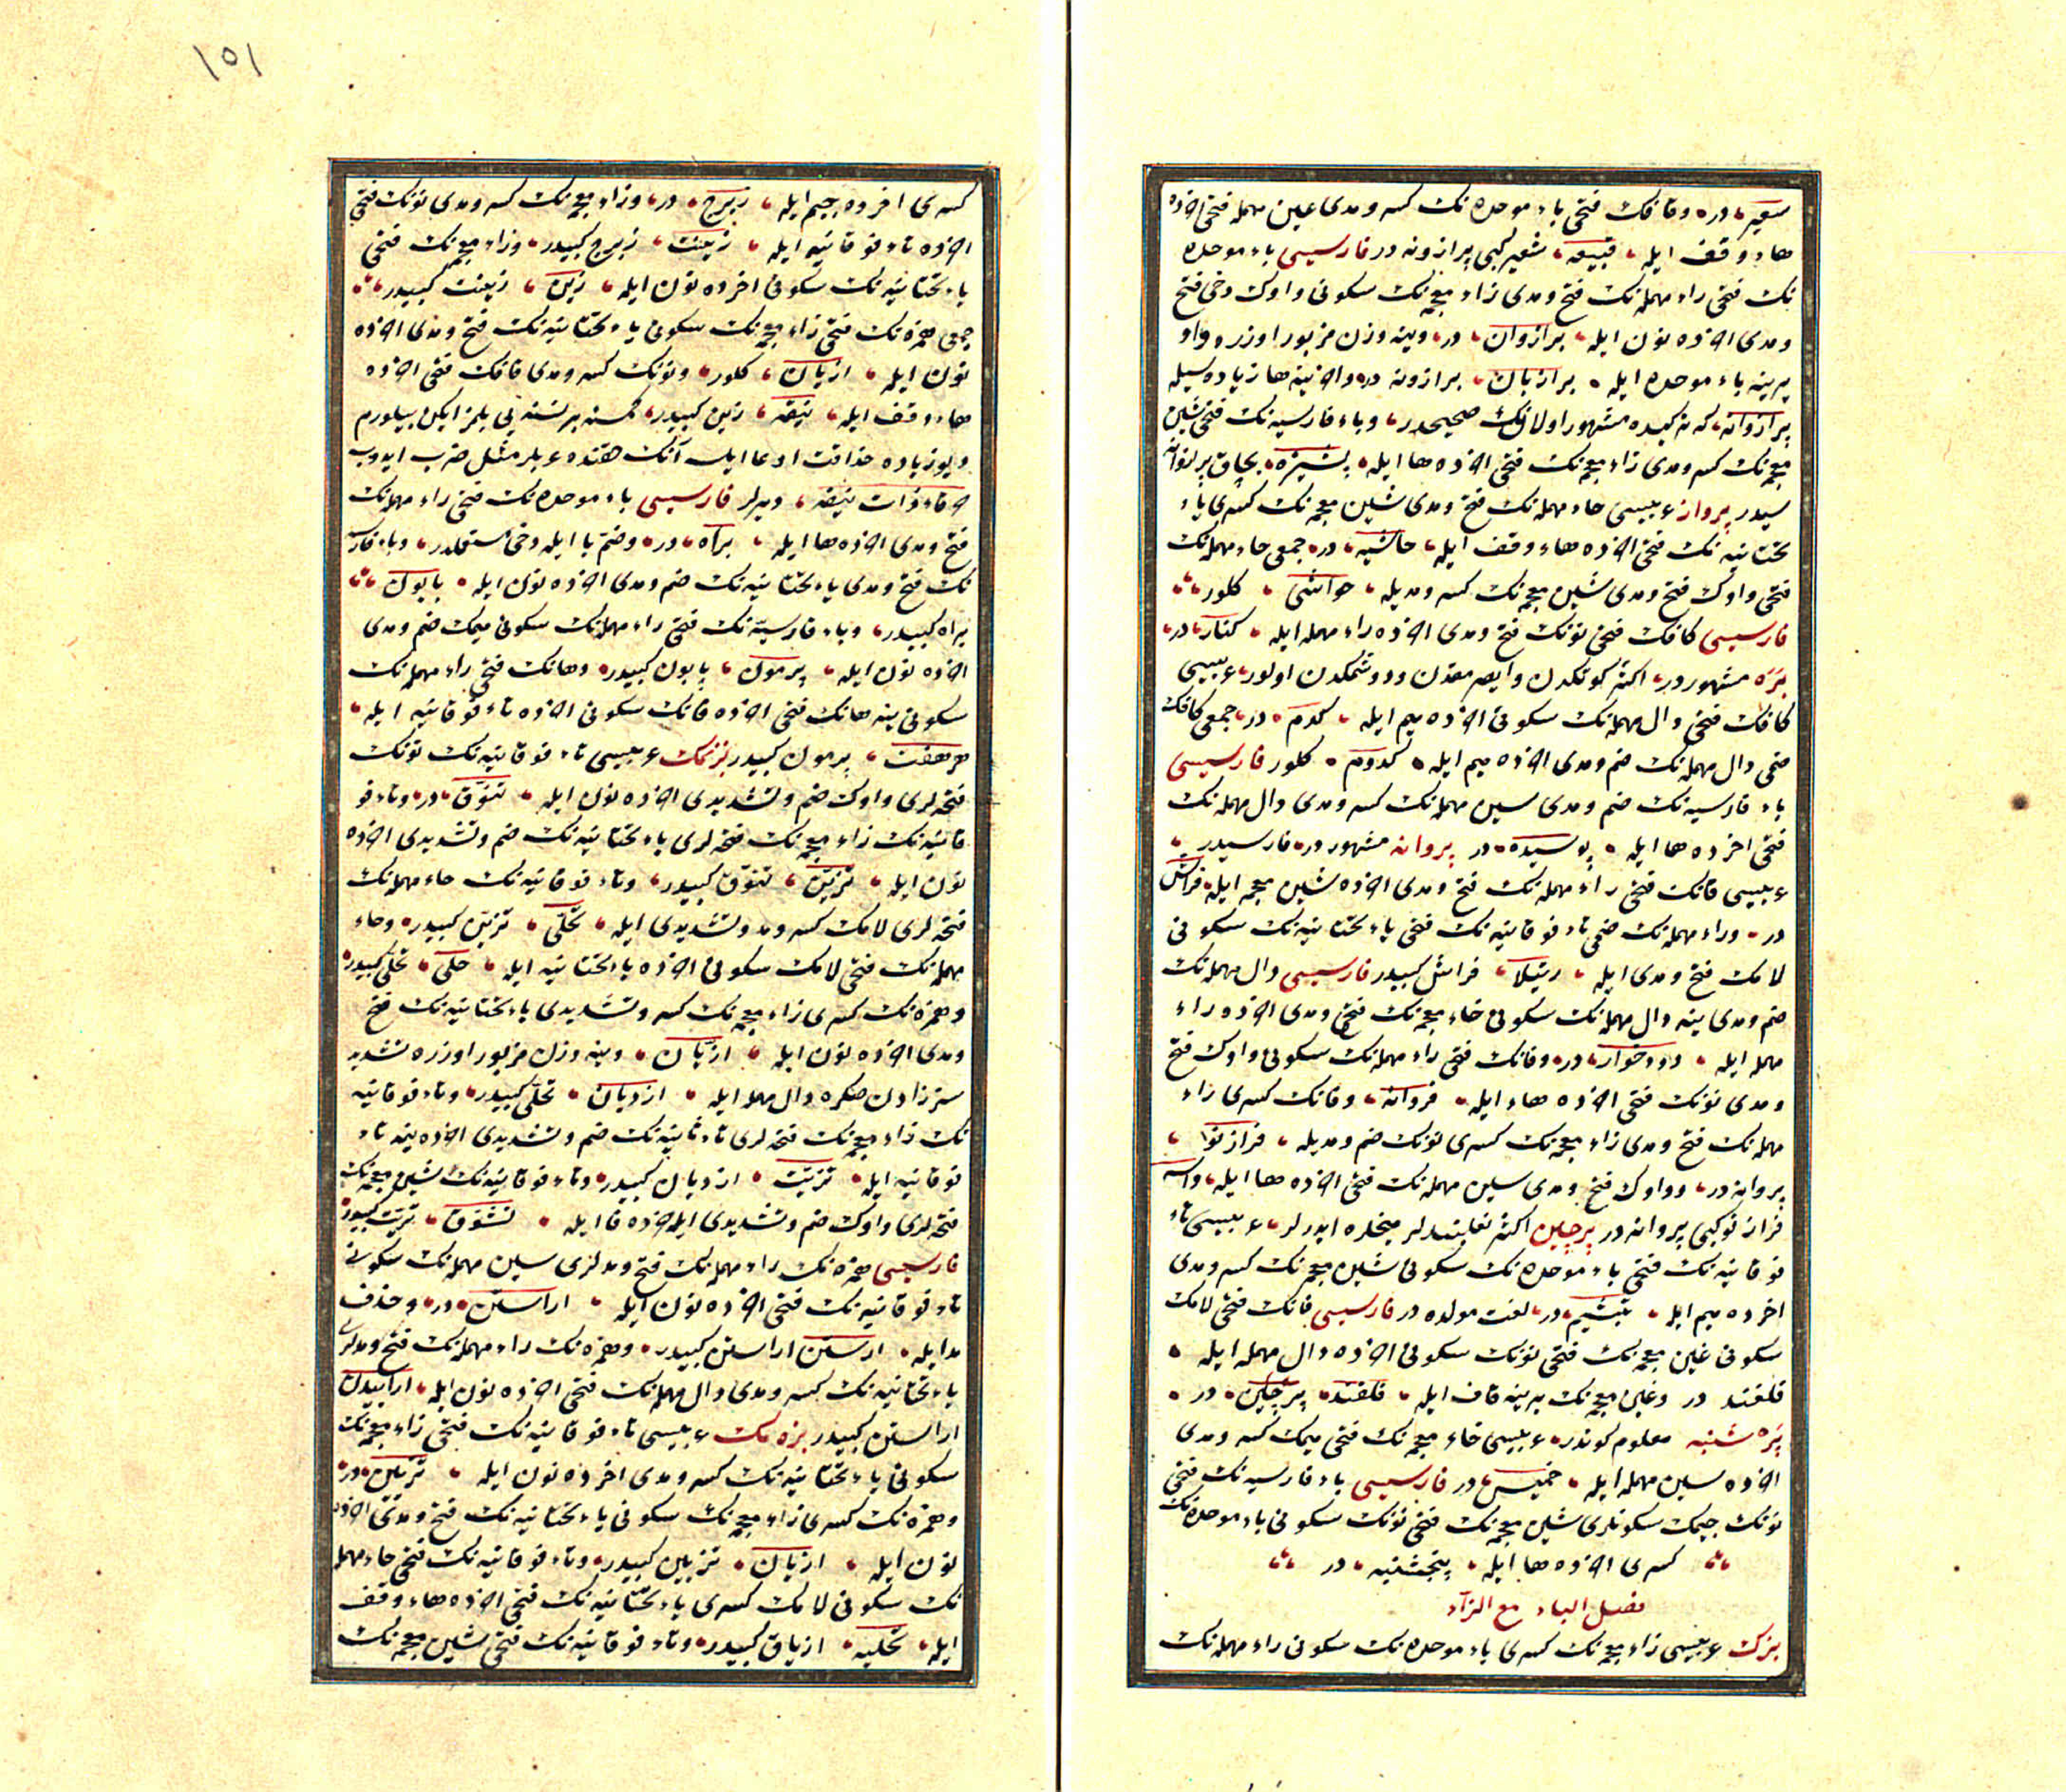 شعیره در وقافک فتحی باء موحده نک کسر ومدی عین مهمله فتحی اخرده
هاء وقف ایله قبیعه شعیر کبی پرازونه در فارسیسی باء موحده
نک فتحی راء مهمله نک فتح ومدی زاء معجمه نک سکونی واوک دخی فتح
ومدی اخرده نون ایله برازوان در وینه وزن مزبور اوزره واو
یرینه باء موحده ایله برازبان برازونه در واخرینه ها زیاده سیله
برازوانه که نه کیده مشهور اولانک صحیحدر وباء فارسیه نک فتحی شین
معجمه نک کسر ومدی زاء معجمه نک فتحی اخرده ها ایله پشیزه بچاق برازوانه
سیدر پرواز عربیسی حاء مهمله نک فتح ومدی شین معجمه نک کسری یاء
تحتانیه نک فتحی اخرده هاء وقف ایله حاشیه در جمعی حاء مهمله نک
فتحی واوک فتح ومدی شین معجمه نک کسر ومدیله حواشی کلور
فارسیسی کافک فتحی نونک فتح ومدی اخرده راء مهمله ایله کنار در
بره مشهور در اکثر کوتکدن وایصرمقدن ودوشمکدن اولور عربیسی
کافک فتحی دال مهمله نک سکونی اخرده میم ایله کدم در جمعی کافک
ضمی دال مهمله نک ضم ومدی اخرده میم ایله کدوم کلور فارسیسی
باء فارسیه نک ضم ومدی سین مهمله نک کسر ومدی دال مهمله نک
فتحی اخرده ها ایله پوسیده در پروانه مشهور در فارسیدر
عربیسی فانک فتحی راء مهمله نک فتح ومدی اخرده شین معجمه ایله فراش
در وراء مهمله نک ضمی تاء فوقانیه نک فتحی یاء تحتانیه نک سکونی
لامک فتح ومدی ایله رتیلا فراش کبیدر فارسیسی دال مهمله نک
ضم ومدی ینه دال مهمله نک سکونی خاء معجمه نک فتح ومدی اخرده راء
مهمله ایله دودخوار در وفانک فتحی راء مهمله نک سکونی واوک فتح
ومدی نونک فتحی اخرده هاء ایله فروانه وفانک کسری راء
مهمله نک فتح ومدی زاء معجمه نک کسری نونک ضم ومدیله فرازنوا
پروانه در وواوک فتح ومدی سین مهمله نک فتحی اخرده ها ایله
فرازنو کبی پروانه در پرچین اکثر نعلبندلر میخلره ایدرلر عربیسی تاء
فوقانیه نک فتحی باء موحده نک سکونی شین معجمه نک کسر ومدی
اخرده میم ایله تبشیم در لغت مولده در فارسیسی فانک فتحی لامک
سکونی غین معجمه نک فتحی نونک سکونی اخرده دال مهمله ایله
فلغند در وغین معجمه نک یرینه قاف ایله فلقند پرچین در
پره شنبه معلوم کوندر عربیسی خاء معجمه نک فتحی میمک کسر ومدی
اخرده سین مهمله ایله خمیس در فارسیسی باء فارسیه نک فتحی
نونک جیمک سکونلری شین معجمه نک فتحی نونک سکونی باء موحده نک
کسری اخرده ها ایله پنجشنبه در
فصل الباء مع الزاء
بزک عربیسی زاء معجمه نک کسری باء موحده نک سکونی راء مهمله نک
١٥١
کسری اخرده جیم ایله زبرج در وزاء معجمه نک کسر ومدی نونک فتحی
اخرده تاء فوقانیه ایله زینت زبرج کبیدر وزاء معجمه نک فتحی
یاء تحتانیه نک سکونی اخرده نون ایله زین زینت کبیدر
جمعی همزه نک فتحی زاء معجمه نک سکونی یاء تحتانیه نک فتح ومدی اخرده
نون ایله ازیان کلور ونونک کسر ومدی قافک فتحی اخرده
هاء وقف ایله نیقه زین کبیدر کمسنه برنسنه یی بلمز ایکن بیلورم
دیو زیاده حذاقت ادعا ایلسه آنک حقنده عربلر مثل ضرب ایدوب
خرقاء ذات نیقه دیرلر فارسیسی باء موحده نک فتحی راء مهمله نک
فتح ومدی اخرده ها ایله براه در وضم با ایله دخی مستعملدر وباء فارسیه
نک فتح ومدی یاء تحتانیه نک ضم ومدی اخرده نون ایله پایون
براه کبیدر وباء فارسیه نک فتحی راء مهمله نک سکونی میمک ضم ومدی
اخرده نون ایله پرمون پایون کبیدر وهانک فتحی راء مهمله نک
سکونی ینه هانک فتحی اخرده فانک سکونی اخرده تاء فوقانیه ایله
هرهفت پرمون کبیدر بزنمک عربیسی تاء فوقانیه نک نونک
فتحه لری واوک ضم وتشدیدی اخرده نون ایله تنوق در وتاء فو
قانیه نک زاء معجمه نک فتحه لری یاء تحتانیه نک ضم وتشدیدی اخرده
نون ایله تزین تنوق کبیدر وتاء فوقانیه نک حاء مهمله نک
فتحه لری لامک کسر ومد وتشدیدی ایله تحلی تزین کبیدر وحاء
مهمله نک فتحی لامک سکونی اخرده یاء تحتانیه ایله حلی تحلی کبیدر
وهمزه نک کسری زاء معجمه نک کسر وتشدیدی یاء تحتانیه نک فتح
ومدی اخرده نون ایله ازیان وینه وزن مزبور اوزره تشدید
سز زادن صکره دال مهمله ایله ازدیان تحلی کبیدر وتاء فوقانیه
نک زاء معجمه نک فتحه لری تاء ثانیه نک ضم وتشدیدی اخرده ینه تاء
فوقانیه ایله تزتت ازدیان کبیدر وتاء فوقانیه نک شین معجمه نک
فتحه لری واوک ضم وتشدیدی ایله اخرده فا ایله تشوف تزیت کبیدر
فارسیسی همزه نک راء مهمله نک فتح ومدلری سین مهمله نک سکونی
تاء فوقانیه نک فتحی اخرده نون ایله اراستن در وحذف
مد ایله ارستن اراستن کبیدر وهمزه نک راء مهمله نک فتح ومدلری
یاء تحتانیه نک کسر ومدی دال مهمله نک فتحی اخرده نون ایله اراییدن
اراستن کبیدر بزه مک عربیسی تاء فوقانیه نک فتحی زاء معجمه نک
سکونی یاء تحتانیه نک کسر ومدی اخرده نون ایله تزیین در
وهمزه نک کسری زاء معجمه نک سکونی یاء تحتانیه نک فتح ومدی اخرده
نون ایله ازیان تزیین کبیدر وتاء فوقانیه نک فتحی حاء مهمله
نک سکونی لامک کسری یاء تحتانیه نک فتحی اخرده هاء وقف
ایله تحلیه ازیان کبیدر وتاء فوقانیه نک فتحی شین معجمه نک